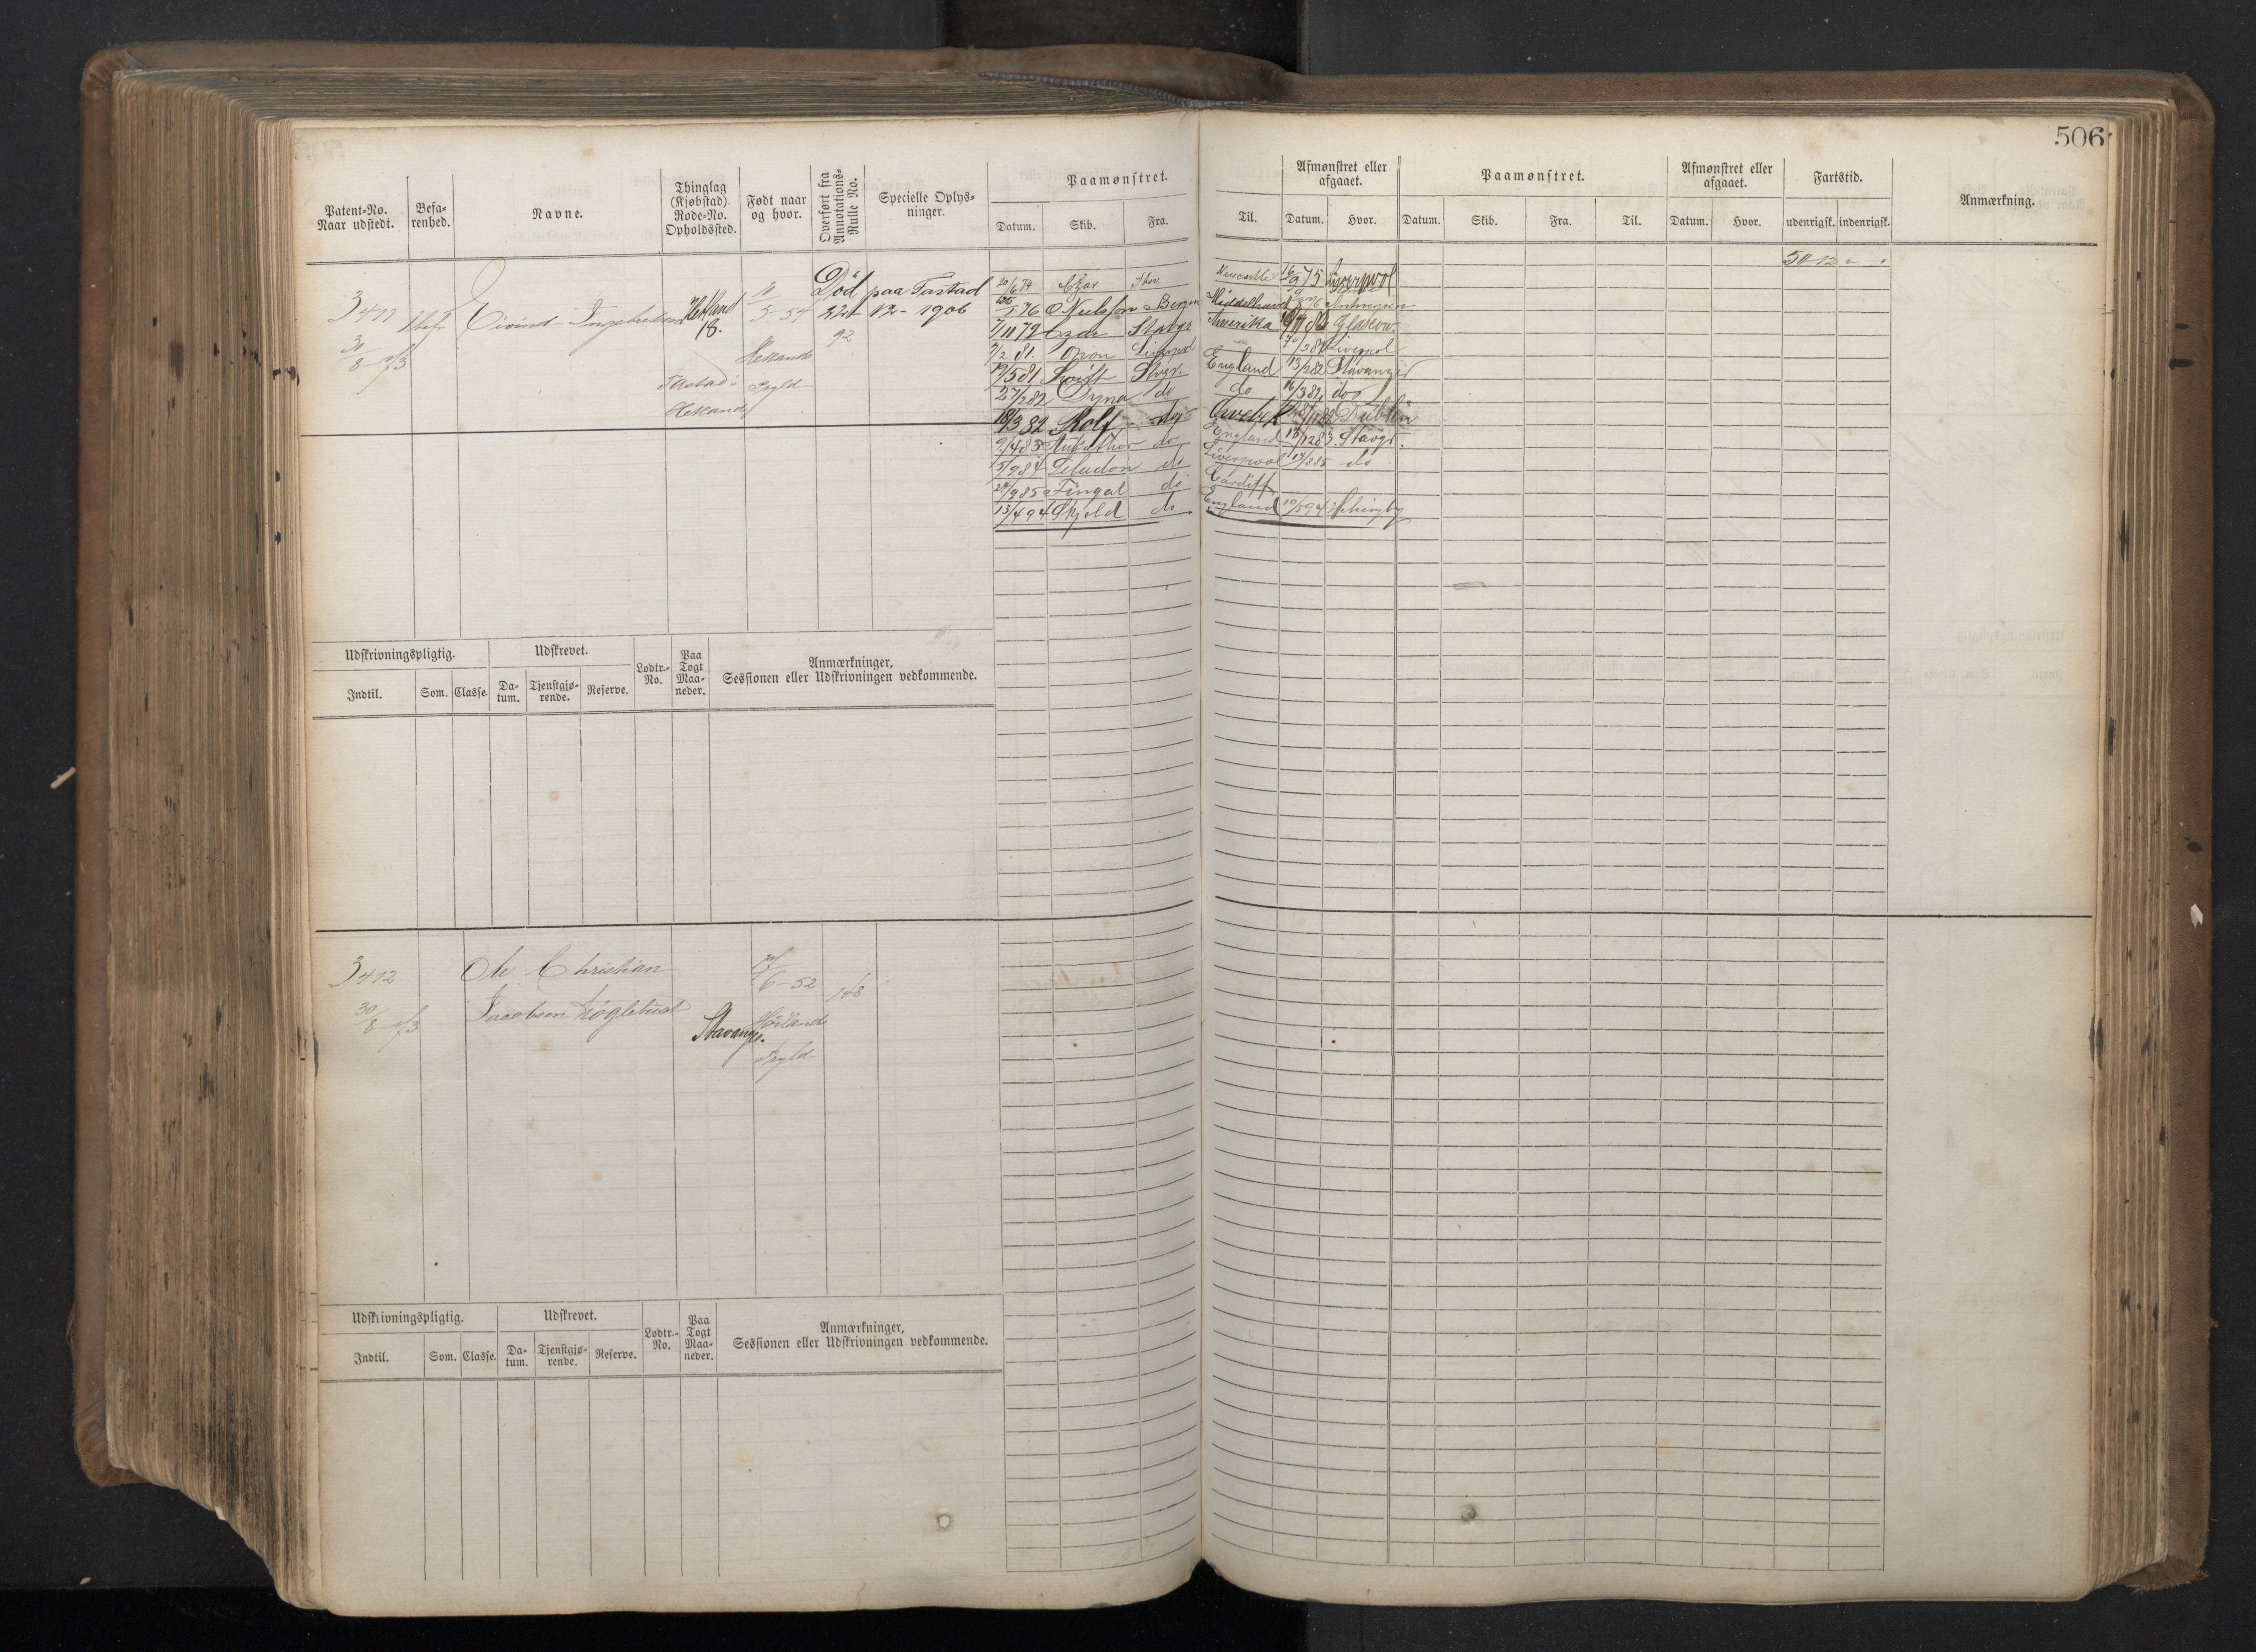 506
Patent-No. Naar udstedt.
Befa-renhed.
Navne.
Thinglag (Kjøbstad). Rode-No. Opholdssted.
Født naar og hvor.
Overført fra Annotations-Rulle No.
Specielle Oplys-ninger.
Paamønstret.
Datum. Skib. Fra. Til.
Afmønstret eller afgaaet.
Datum. Hvor.
Paamønstret.
Datum. Skib. Fra. Til.
Afmønstret eller afgaaet.
Datum. Hvor.
Fartstid.
udenrigsk. indenrigsk.
Anmærkning.
3411
30/8 73
Eivind Ingebretsen
Hetland 18.
Tastad i Hetland
5-54
Hetlands Prgld
92
Död paa Tastad
22 12 - 1906
20/6 74 Czar Stav. Newcastle 16/9 75 Liverpool
76 O Nielsson Bergen Middelhavet Antwerpen
7/11 79 Czar Stavgr Amerika Glascow
7/2 81. Orion Liverpol 81 Liverpol
19/5 81 Svift Stvgr. England 13/2 82 Stavanger
27/2 82 Dyna do do 16/3 82 do
18/3 82 Rolf do Qvebek 82 Dublin
9/4 83 do England 18/12 83 Stavgr.
15/9 84 do Liverpool 85 do
29/9 85 Fingal do Cardiff
13/4 94 Skjold do England 10/5 94
50 12
Udskrivningspligtig.
Indtil. Som. Classe.
Udskrevet.
Da-tum. Tjenstgjø-rende. Reserve.
Lodtr.-No.
Paa Togt Maa-neder.
Anmærkninger, Sessionen eller Udskrivningen vedkommende.
3412
30/8 73
Ole Christian
Jacobsen
Stavanger.
6-52
Høilands
Prgld
148
Udskrivningspligtig.
Indtil. Som. Classe.
Udskrevet.
Da-tum. Tjenstgjø-rende. Reserve.
Lodtr.-No.
Paa Togt Maa-neder.
Anmærkninger, Sessionen eller Udskrivningen vedkommende.